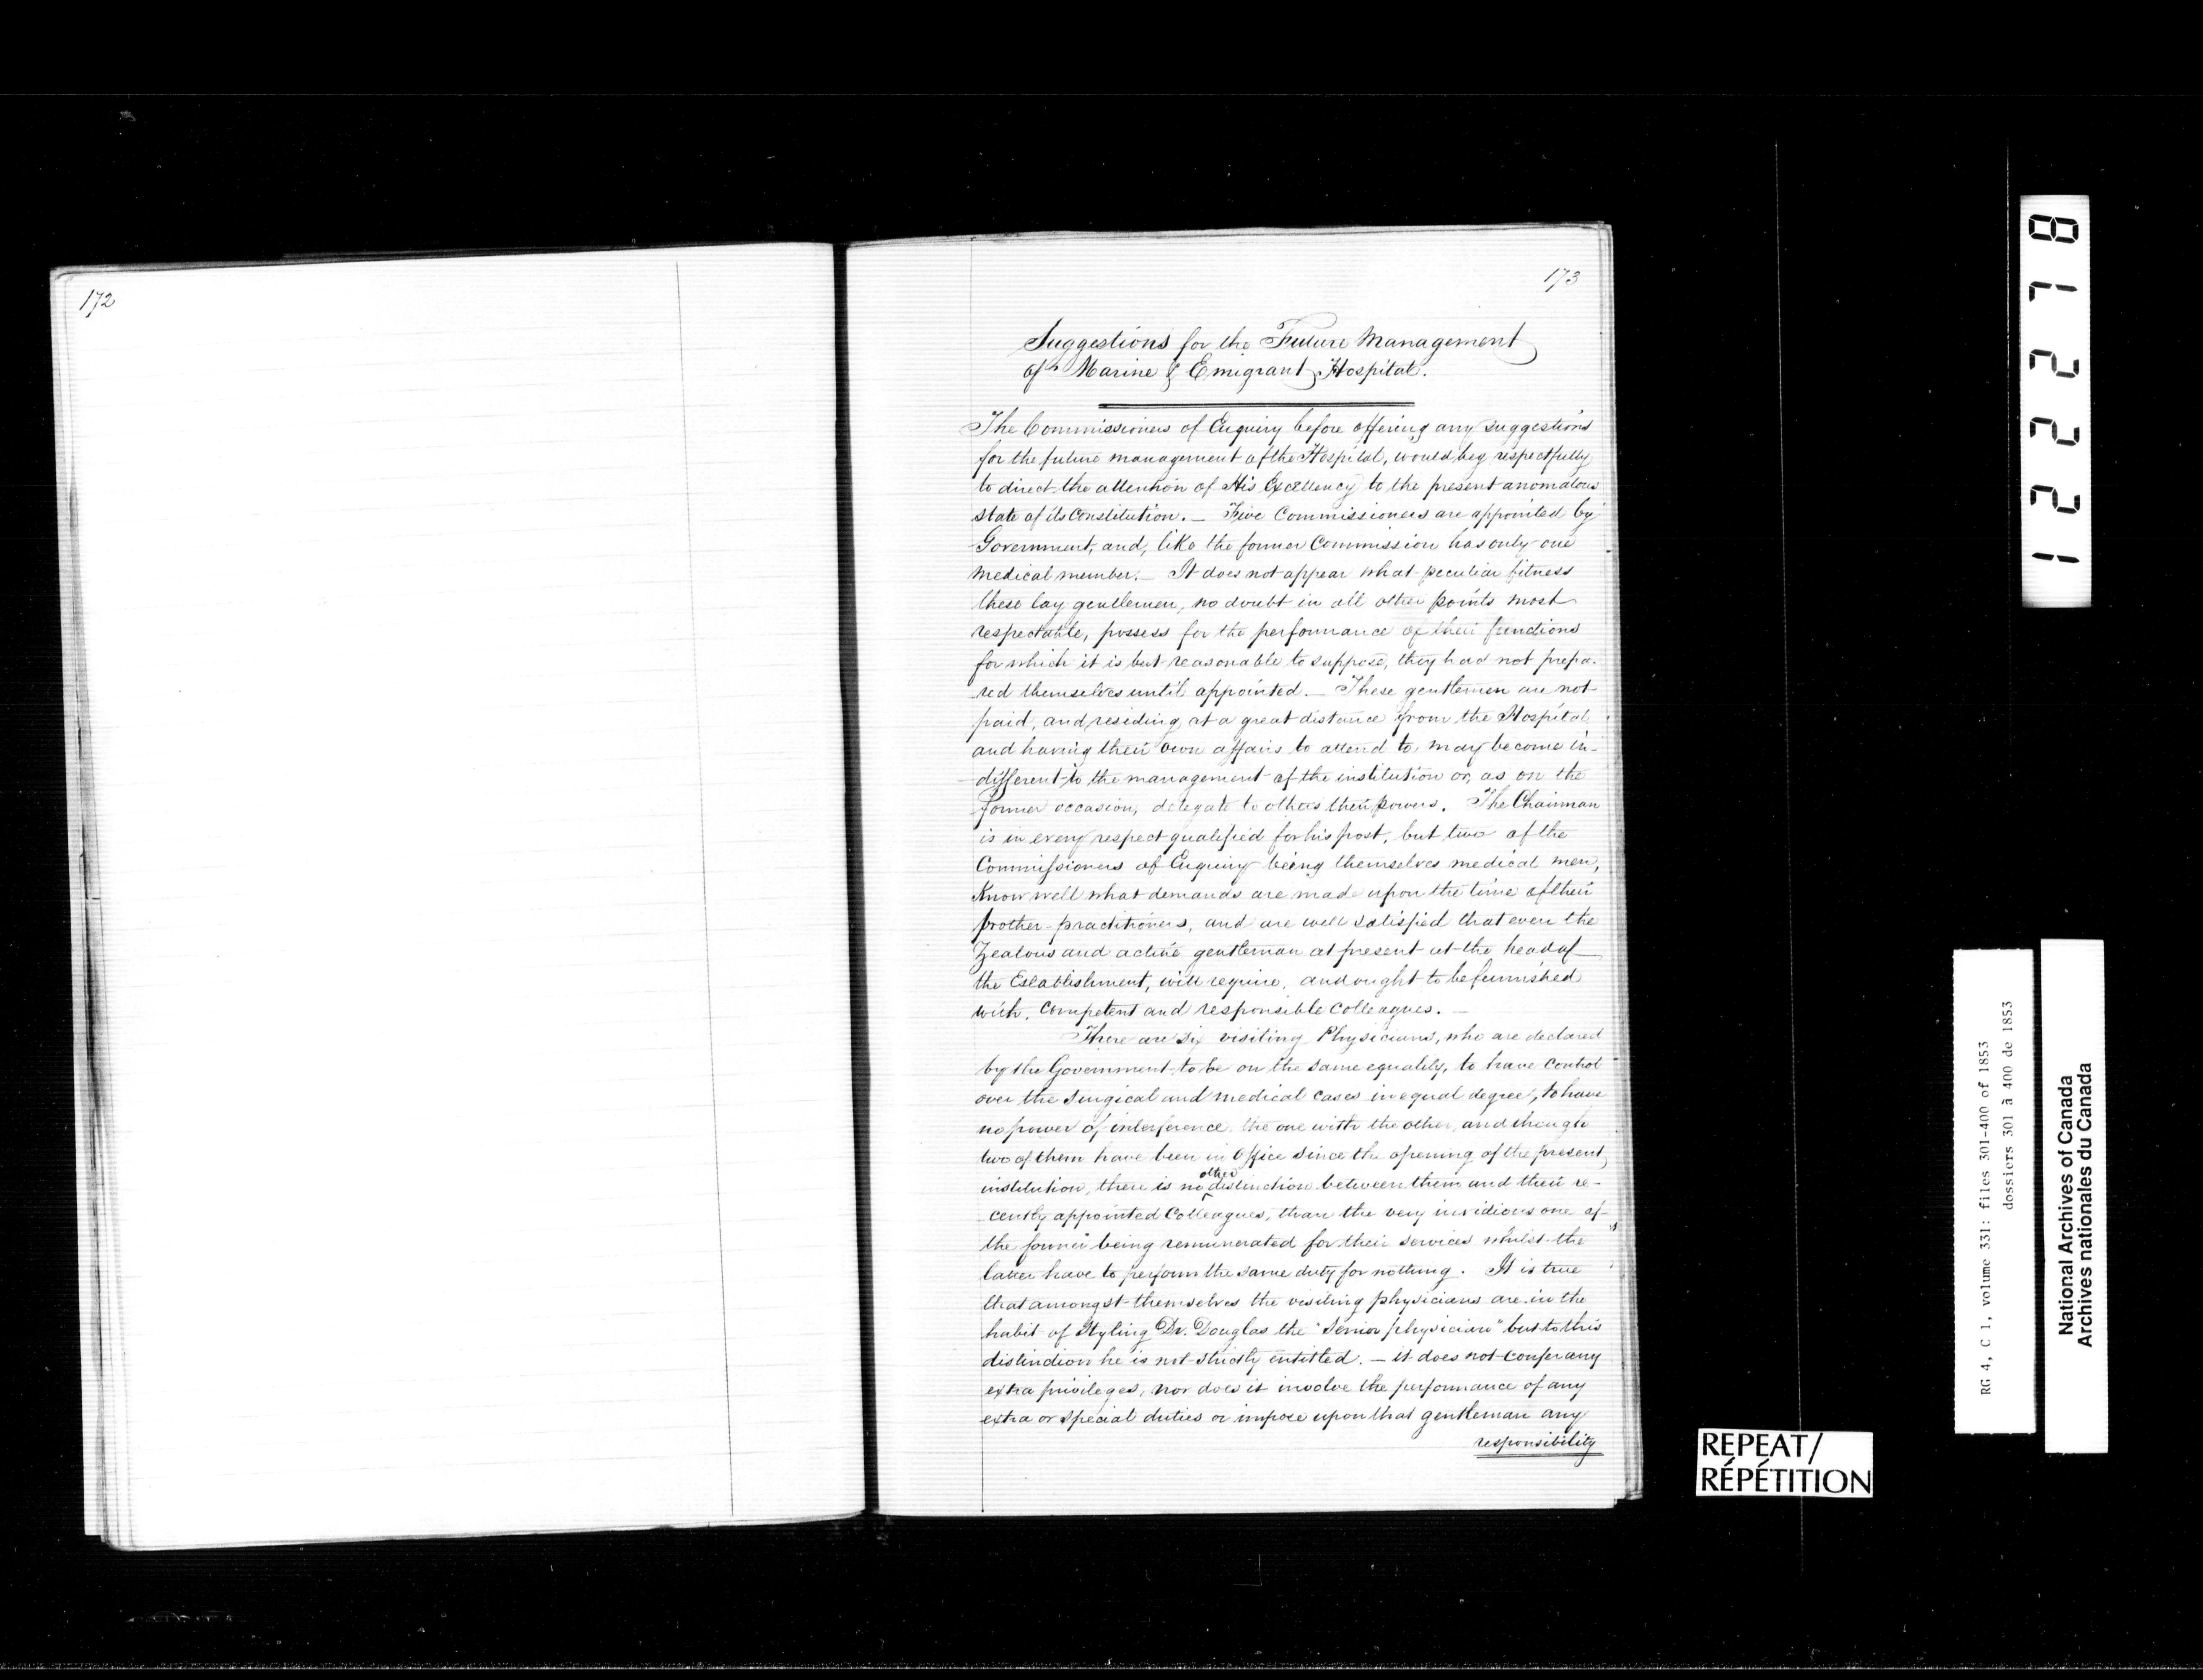 172
173
Suggestions for the Future Management
of Marine & Emigrant Hospital.
The Commissioners of Enquiry before offering any suggestions
for the future management of the Hospital, would beg respectfully
to direct the attention of His Excellency to the present anomalous
state of its constitution. — Five Commissioners are appointed by
Government, and, like the former Commission has only one
medical member. — It does not appear what peculiar fitness
these lay gentlemen, no doubt in all other points most
respectable, possess for the performance of their functions
for which it is but reasonable to suppose, they had not prepa-
red themselves until appointed. — These gentlemen are not
paid, and residing at a great distance from the Hospital
and having their own affairs to attend to, may become in-
different to the management of the institution or, as on the
former occasion, delegate to others their powers. The Chairman
is in every respect qualified for his post, but two of the
Commissioners of Enquiry being themselves medical men,
Know well what demands are made upon the time of their
brother-practitioners, and are well satisfied that even the
Zealous and active gentleman at present at the head of
the Establishment, will require, and ought to be furnished
with, competent and responsible colleagues. —
There are six visiting Physicians, who are declared
by the Government to be on the same equality, to have control
over the surgical and medical cases in equal degree, to have
no power of interference the one with the other, and though
two of them have been in office since the opening of the present
institution, there is no other distinction between them and their re-
cently appointed Colleagues, than the very invidious one of
the former being remunerated for their services whilst the
latter have to perform the same duty for nothing. It is true
that amongst themselves the visiting physicians are in the
habit of Styling Dr. Douglas the "Senior physician" but to this
distinction he is not strictly entitled. — it does not confer any
extra privileges, nor does it involve the performance of any
extra or special duties or impose upon that gentleman any
responsibility
12278
RG 4, C 1, volume 331: files 301-400 of 1853
dossiers 301 à 400 de 1853
National Archives of Canada
Archives nationales du Canada
REPEAT/
RÉPÉTITION